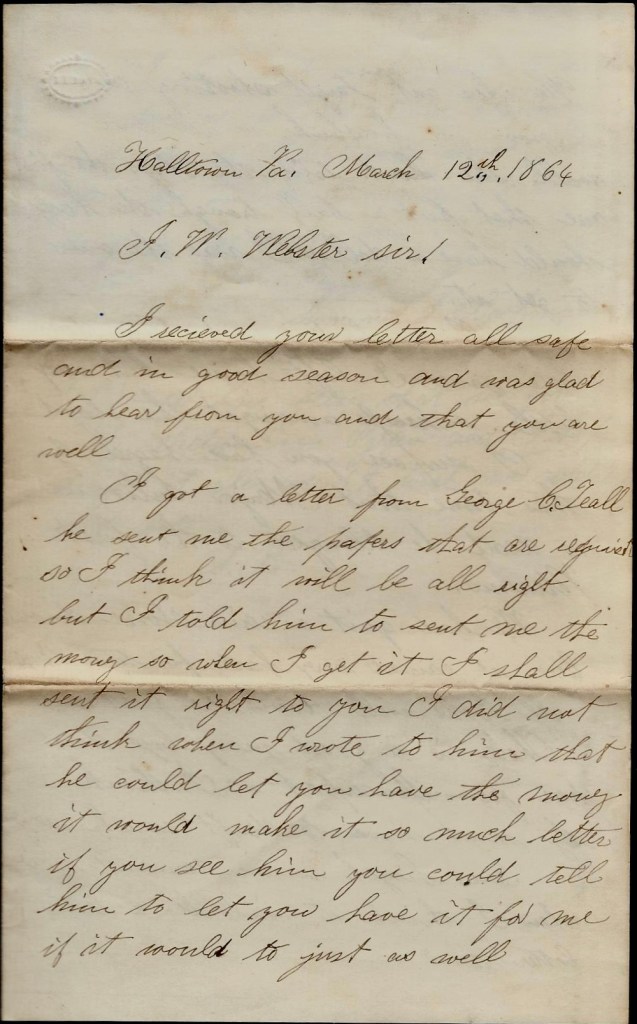 Halltown Va. March 12th, 1864
J. W. Webster sir!
I recieved your letter all safe
and in good season and was glad
to hear from you and that you are
well
I got a letter from George C. Teall
he sent me the papers that are required
so I think it will be all right
but I told him to sent me the
mony so when I get it I shall
sent it right to you I did not
think when I wrote to him that
he could let you have the mony
it would make it so much better
if you see him you could tell
him to let you have it for me
if it would to just as well